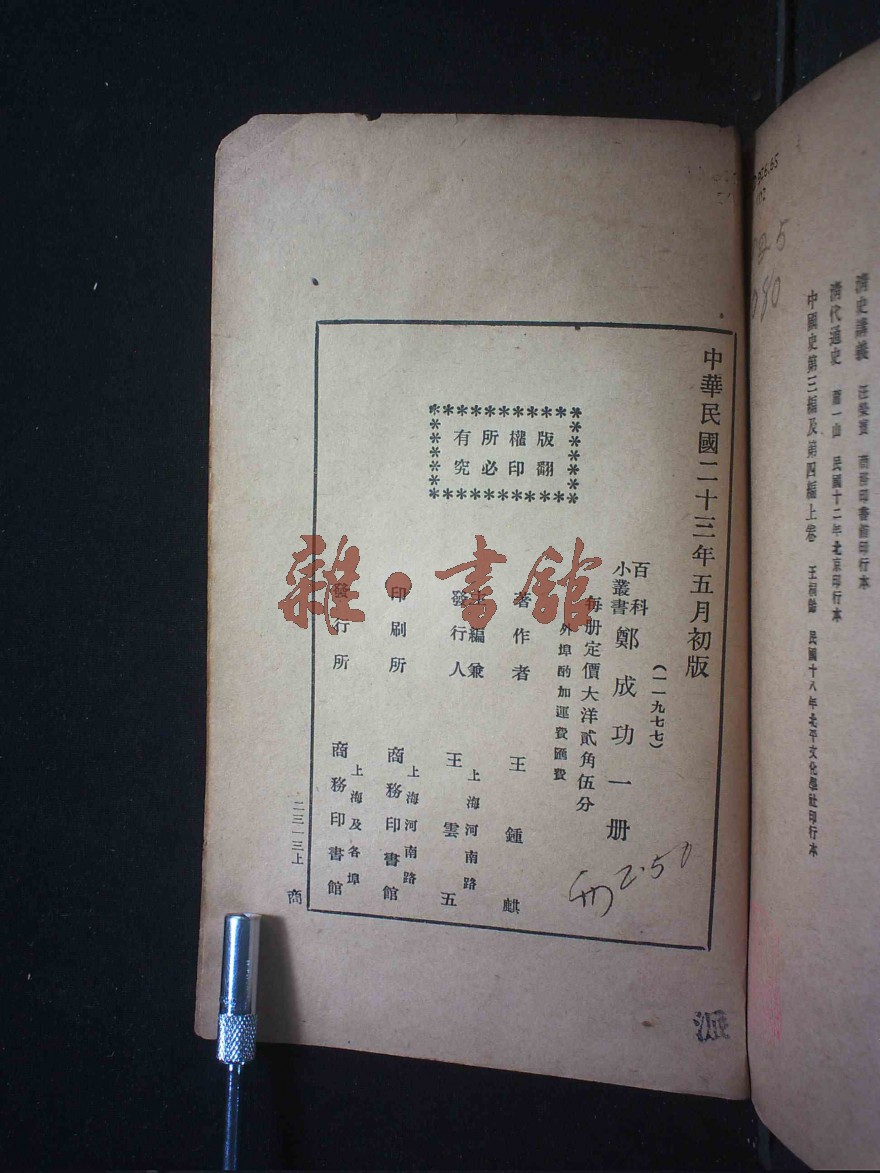 清史講義　汪榮寶　商務印書館印行本
清代通史　蕭一山　民國十二年北京印行本
中國史第三編及第四編上卷　王桐齡　民國十八年北平文化學社印行本
中華民國二十三年五月初版
（一一九七七）
百科
小叢書
鄭成功一册
每册定價大洋貳角伍分
外埠酌加運費匯費
版權所有
翻印必究
著作者　王鍾麒
主編兼
發行人
上海河南路
王雲五
印刷所
上海河南路
商務印書館
發行所
上海及各埠
商務印書館
二三一三上
商
2.50
雜·書館